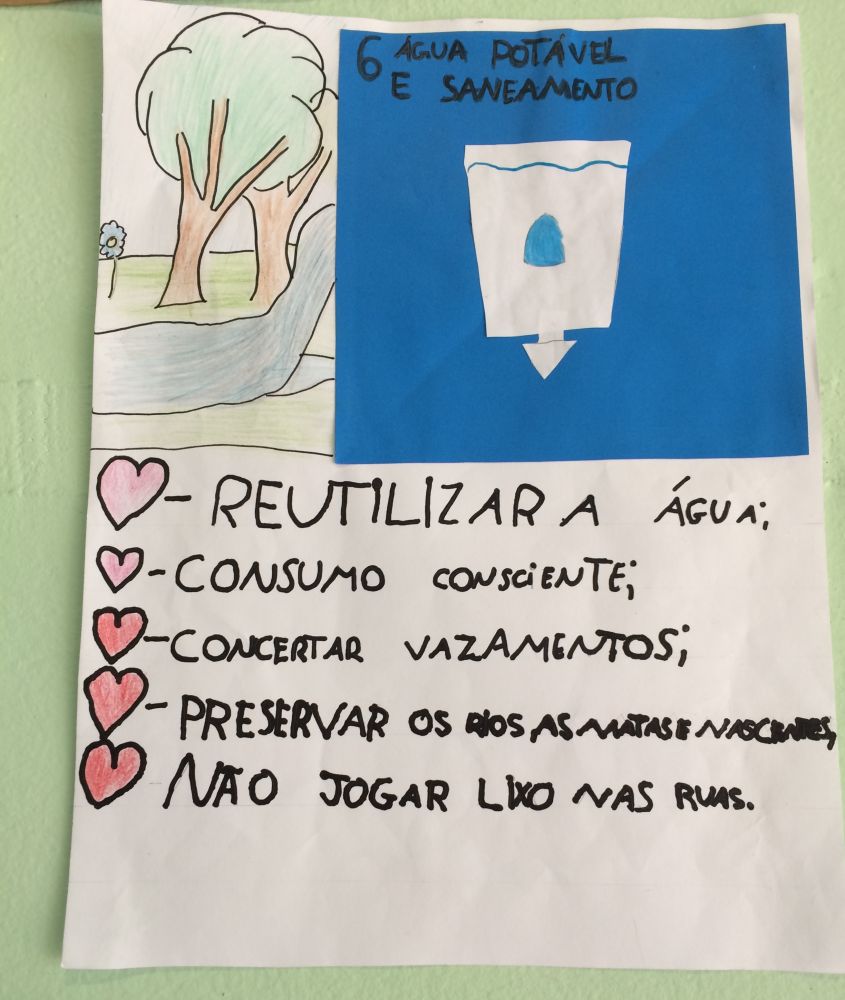 6 ÁGUA POTÁVEL
E SANEAMENTO
- REUTILIZAR A ÁGUA;
- CONSUMO CONSCIENTE;
- CONCERTAR VAZAMENTOS;
- PRESERVAR OS RIOS, AS MATAS E NASCENTES,
- NÃO JOGAR LIXO NAS RUAS.